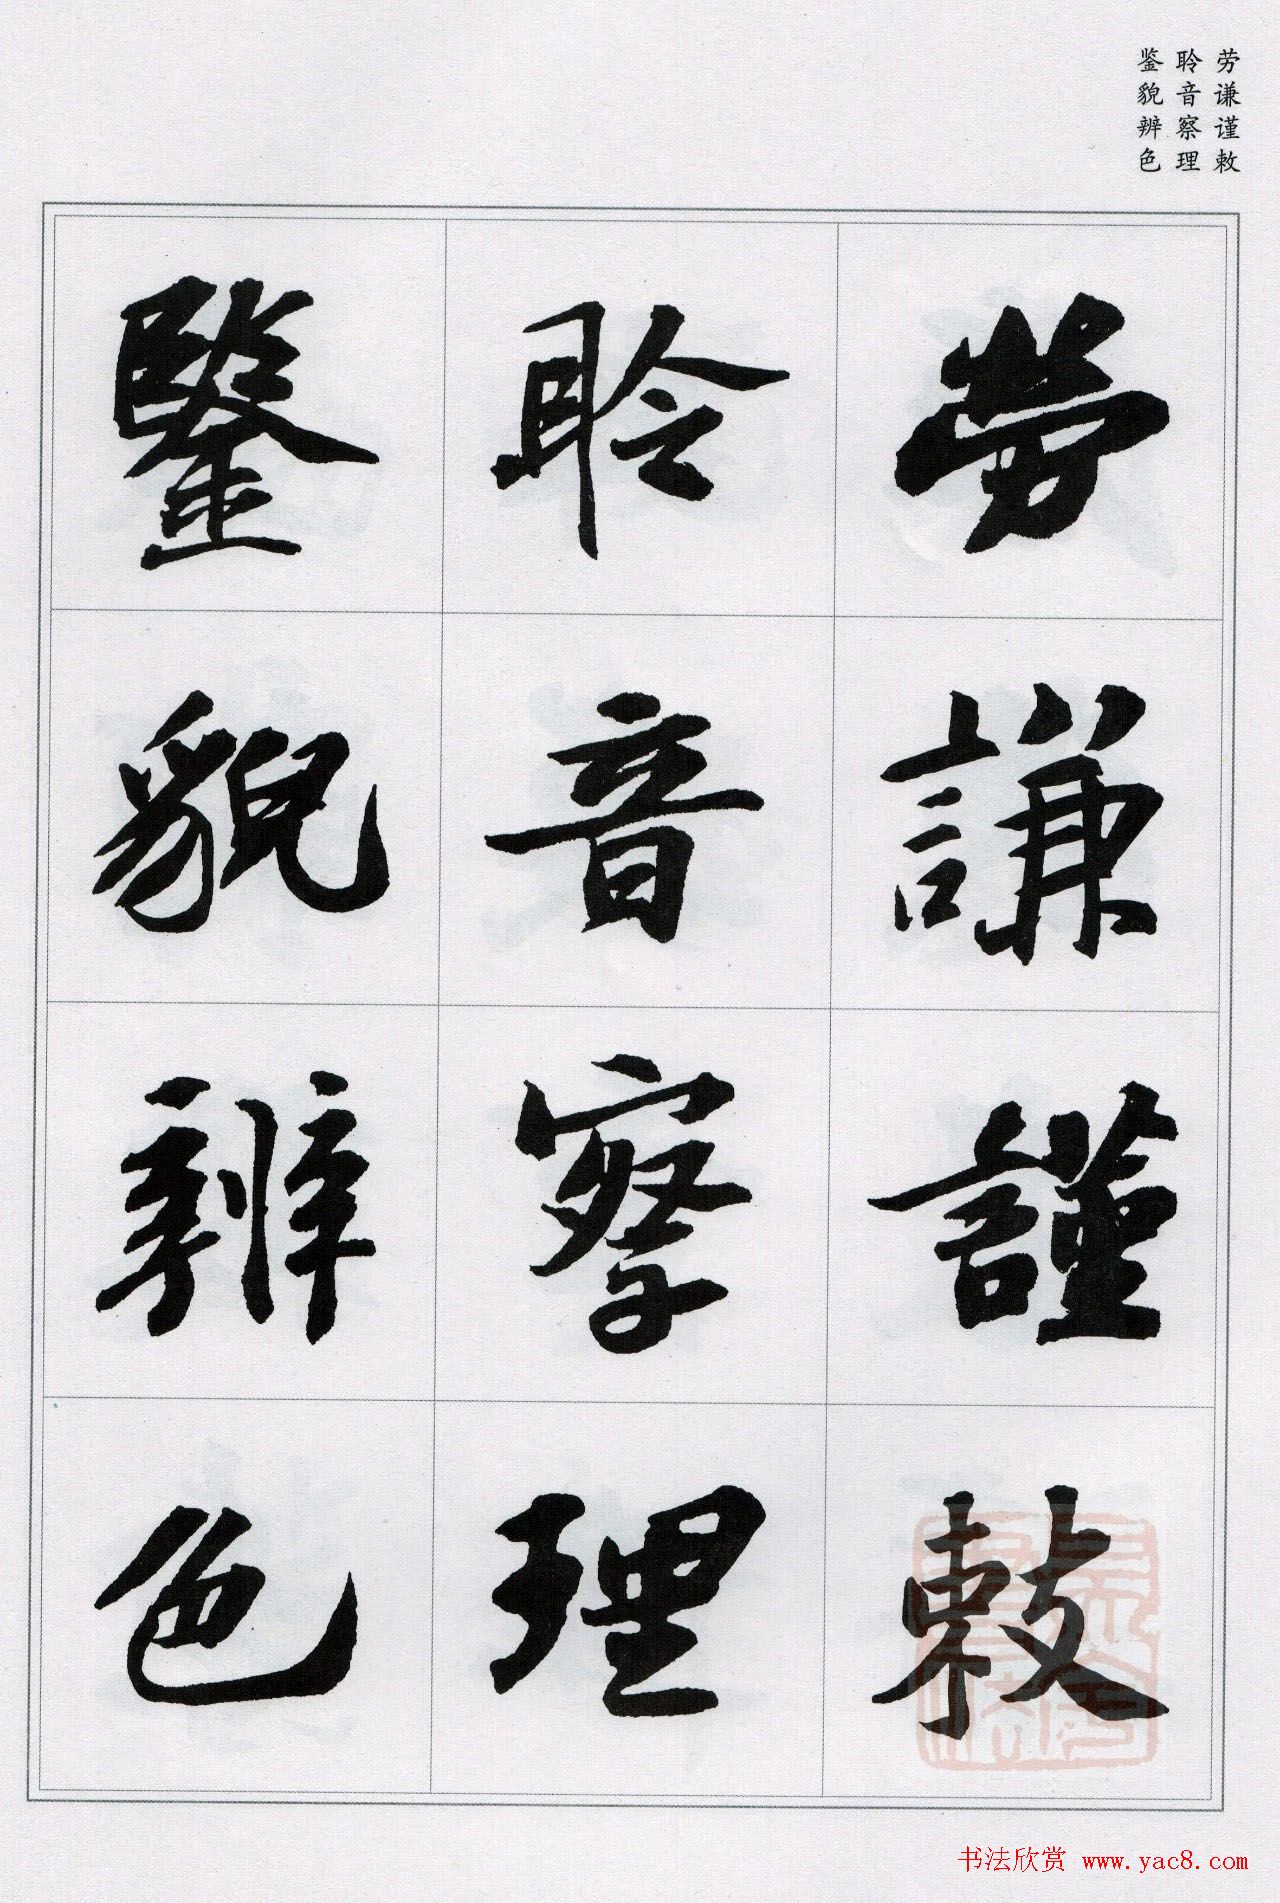 劳谦谨敕
聆音察理
鉴貌辨色
勞謙謹敕
聆音察理
鑒貌辨色
书法欣赏 www.yac8.com